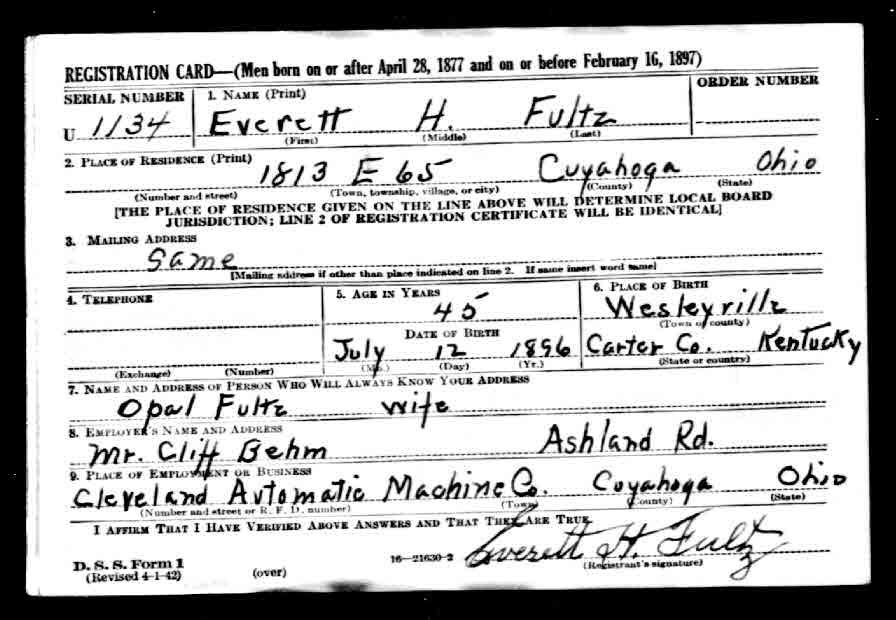 REGISTRATION CARD—(Men born on or after April 28, 1877 and on or before February 16, 1897)
SERIAL NUMBER 1. NAME (Print) ORDER NUMBER
U 1134 Everett H. Fultz
(First) (Middle) (Last)
2. PLACE OF RESIDENCE (Print)
1813 E 65 Cuyahoga Ohio
(Number and street) (Town, township, village, or city) (County) (State)
[THE PLACE OF RESIDENCE GIVEN ON THE LINE ABOVE WILL DETERMINE LOCAL BOARD
JURISDICTION; LINE 2 OF REGISTRATION CERTIFICATE WILL BE IDENTICAL]
3. MAILING ADDRESS
Same
[Mailing address if other than place indicated on line 2. If same insert word same]
4. TELEPHONE 5. AGE IN YEARS 6. PLACE OF BIRTH
45 Wesleyville
(Town or county)
DATE OF BIRTH
July 12 1896 Carter Co. Kentucky
(Exchange) (Number) (Mo.) (Day) (Yr.) (State or country)
7. NAME AND ADDRESS OF PERSON WHO WILL ALWAYS KNOW YOUR ADDRESS
Opal Fultz wife
8. EMPLOYER'S NAME AND ADDRESS
Mr. Cliff Behm Ashland Rd.
9. PLACE OF EMPLOYMENT OR BUSINESS
Cleveland Automatic Machine Co. Cuyahoga Ohio
(Number and street or R. F. D. number) (Town) (County) (State)
I AFFIRM THAT I HAVE VERIFIED ABOVE ANSWERS AND THAT THEY ARE TRUE.
Everett H. Fultz
D. S. S. Form 1 16—21630-2 (Registrant's signature)
(Revised 4-1-42) (over)